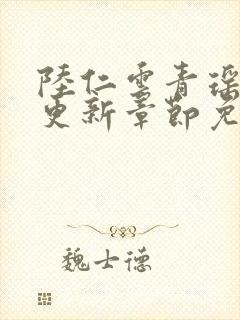 陸仁雲青瑶
更新章節免
魏士德